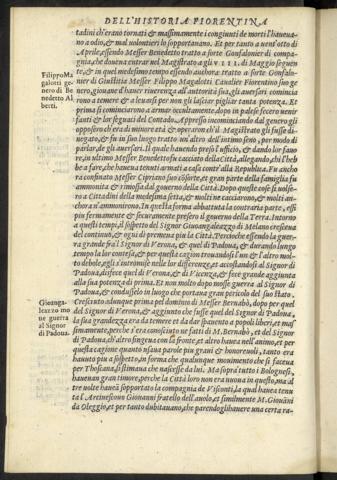 DELL'HISTORIA FIORENTINA
tadini ch'erano tornati & massimamente i congiunti de morti l'haveuano a odio, & mal volontieri lo sopportauano. Et per tanto a uent'otto di
Aprile, essendo Messer Benedetto tratto a sorte Gonfalonier di compagnia, che doueua entrar nel Magistrato agli VIII. di Maggio seguente, & in quel medesimo tempo essendo anchora tratto a sorte Gonfalonier
FilippoMagalotti genero di Benedetto Alberti.
di Giustitia Messer Filippo Magalotti Caualier Fiorentino suo genero, giouane d'hauer riuerenza all'autorità sua, gli auersari cominciarono a temere & a leuarsi per non gli lasciar pigliar tanta potenza. Et
prima si cominciarono a armar occultamente, dopo in palese fecero uenir
fanti & lor seguaci del Contado. Appresso incominciando dal genero gli
opposero ch'era di minore età & operaron ch'il Magistrato gli fusse dinegato, & fu in suo luogo tratto un'altro dell'intimo seno, per modo di
parlar, di quelle parti. Il quale hauendo preso l'ufficio, & dando lor fauore, in ultimo Messer Benedetto fu cacciato della Città, allegando, ch'l'hebbe a fare, che haueua tenuti armati a casa contr'alla Republica. Fu anchora confinato Messer Cipriano suo cōsorte, et gran parte della famiglia fu
ammonita & rimossa dal gouerno della Città. Dopo queste cose si uolsero a Cittadini della medesima setta, & molti ne cacciarono, & molti anchora n'ammonirono. In questa forma abbattuta la contraria parte, essi
piu fermamente & securamente presero il gouerno della Terra. Intorno
a questi tempi, il sospetto del Signor Giouangaleazzo di Melano cresceua
del continuo, & ogni dì premeua piu la Città. Percioche essendo la guerra grande fra'l Signor di Verona, & quel di Padoua, & durando lungo
tempo la lor contesa, & per questa cagion trouandosi l'un & l'altro molto debole, egli s'intromise nelle lor differenze, et accostandosi al Signor di
Padoua, disfece quel di Verona, & di Vicenza, & fece grande aggiunta
alla sua potenza di prima. Et non molto dopo mosse guerra al Signor di
Padoua, & condusselo in luogo che portaua gran pericolo del suo stato.
Giouangaleazzo moue guerra al Signor di Padoua.
Cresciuto adunque prima pel dominio di Messer Bernabò, dopo per quel
del Signor di Verona, & aggiunto che fusse quel del Signor di Padoua,
la sua grandezza era da temere et da dar spauento a popoli liberi, et massimamente, perche s'era conosciuto ne fatti di M. Bernabò, et del Signor
di Padoua, ch'altro fingeua con la fronte, et altro haueua nell'animo, et per
questa cagione quanto usaua parole piu grati & honoreuoli, tanto era
hauuto piu a sospetto, in forma che qualunque mouimento che si faceua
per Thoscana, si stimaua che nascesse da lui. Ma sopra tutto i Bolognesi,
haueuan gran timore, perche la Città loro non era nuoua in questo, ma al
tre uolte haueua sopportato la compagnia de Visconti, la qual haueua tenuta l'Arciuescouo Giouanni fratello dell'auolo, et similmente M. Giouāni
da Oleggio, et per tanto dubitauano, che parendogli hauere una certa ra-